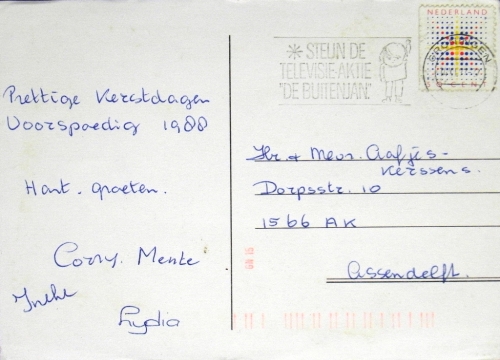 Prettige Kerstdagen
Voorspoedig 1988
Hart. groeten.
Corry. Menke
Ineke
Lydia
NEDERLAND
GRONINGEN
* STEUN DE
TELEVISIE-AKTIE
"DE BUITENJAN."
Hr. + Mevr. Aafjes-
Kerssens.
Dorpsstr. 10
1566 AK
Assendelft.